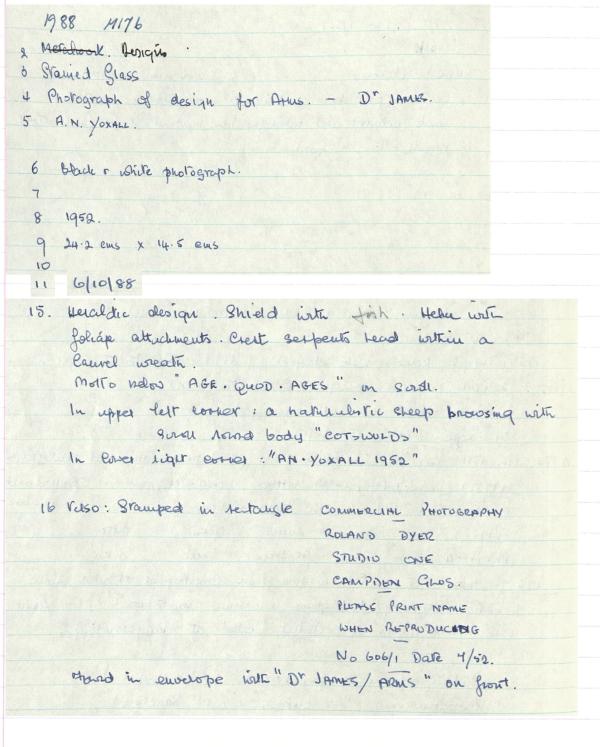 1988 M176
2 Metalwork. Designs
3 Stained Glass
4 Photograph of design for Arms. - Dr JAMES.
5 A.N. YOXALL.
6 black & white photograph.
7
8 1952.
9 24.2 cms x 14.5 cms
10
11 6/10/88
15. Heraldic design. Shield with fish. Helm with
foliage attachments. Crest serpents head within a
laurel wreath.
Motto below "AGE. QUOD. AGES" on scroll.
In upper left corner: a naturalistic sheep browsing with
scroll round body "COTSWOLDS"
In lower right corner: "A.N. YOXALL 1952"
16 Verso: Stamped in rectangle COMMERCIAL PHOTOGRAPHY
ROLAND DYER
STUDIO ONE
CAMPDEN GLOS.
PLEASE PRINT NAME
WHEN REPRODUCING
No 606/1 Date 7/52.
Found in envelope with "Dr JAMES/ARMS" on front.